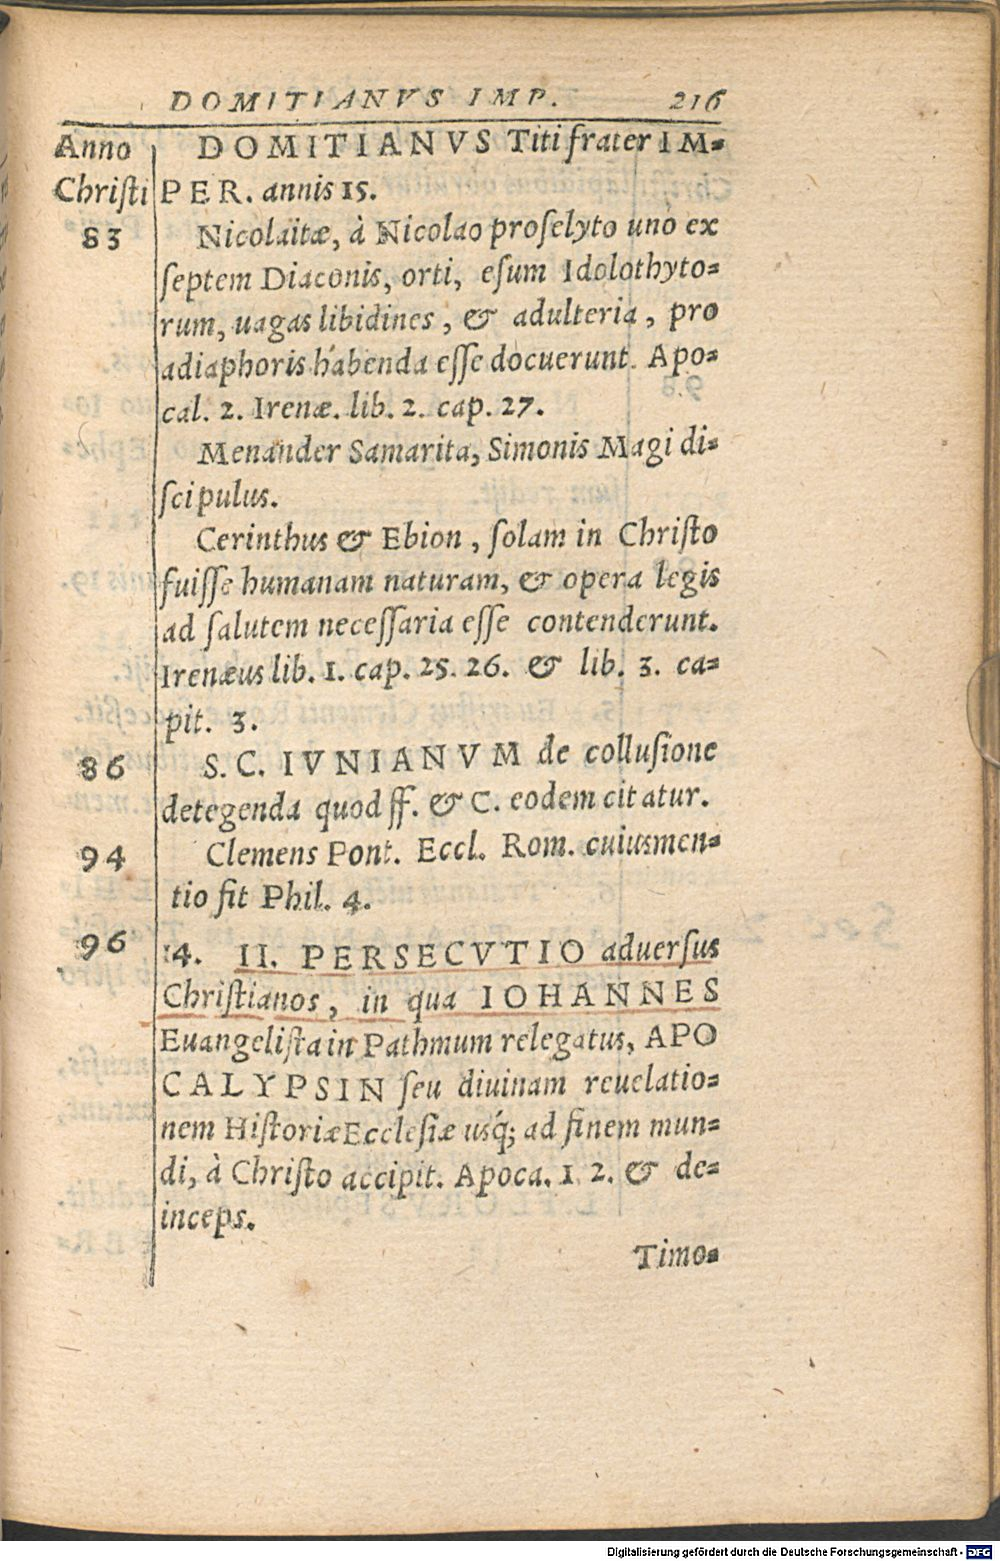 DOMITIANVS IMP. 216
Anno DOMITIANVS Titi frater IM⸗
Christi PER. annis 15.
83 Nicolaitæ, à Nicolao proſelyto uno ex
ſeptem Diaconis, orti, eſum Idolothyto⸗
rum, uagas libidines, & adulteria, pro
adiaphoris habenda eſſe docuerunt. Apo⸗
cal. 2. Irenæ. lib. 2. cap. 27.
Menander Samarita, Simonis Magi di⸗
ſcipulus.
Cerinthus & Ebion, ſolam in Chriſto
fuiſſe humanam naturam, & opera legis
ad ſalutem neceſſaria eſſe contenderunt.
Irenæus lib. 1. cap. 25. 26. & lib. 3. ca⸗
pit. 3.
86 S. C. IVNIANVM de colluſione
detegenda quod ff. & C. eodem citatur.
94 Clemens Pont. Eccl. Rom. cuius men⸗
tio fit Phil. 4.
96 14. II. PERSECVTIO aduerſus
Chriſtianos, in qua IOHANNES
Euangeliſta in Pathmum relegatus, APO
CALYPSIN ſeu diuinam reuelatio⸗
nem Hiſtoriæ Eccleſiæ uſq́; ad finem mun⸗
di, à Chriſto accipit. Apoca. 1. 2. & de⸗
inceps.
Timo⸗
Digitalisierung gefördert durch die Deutsche Forschungsgemeinschaft - DFG